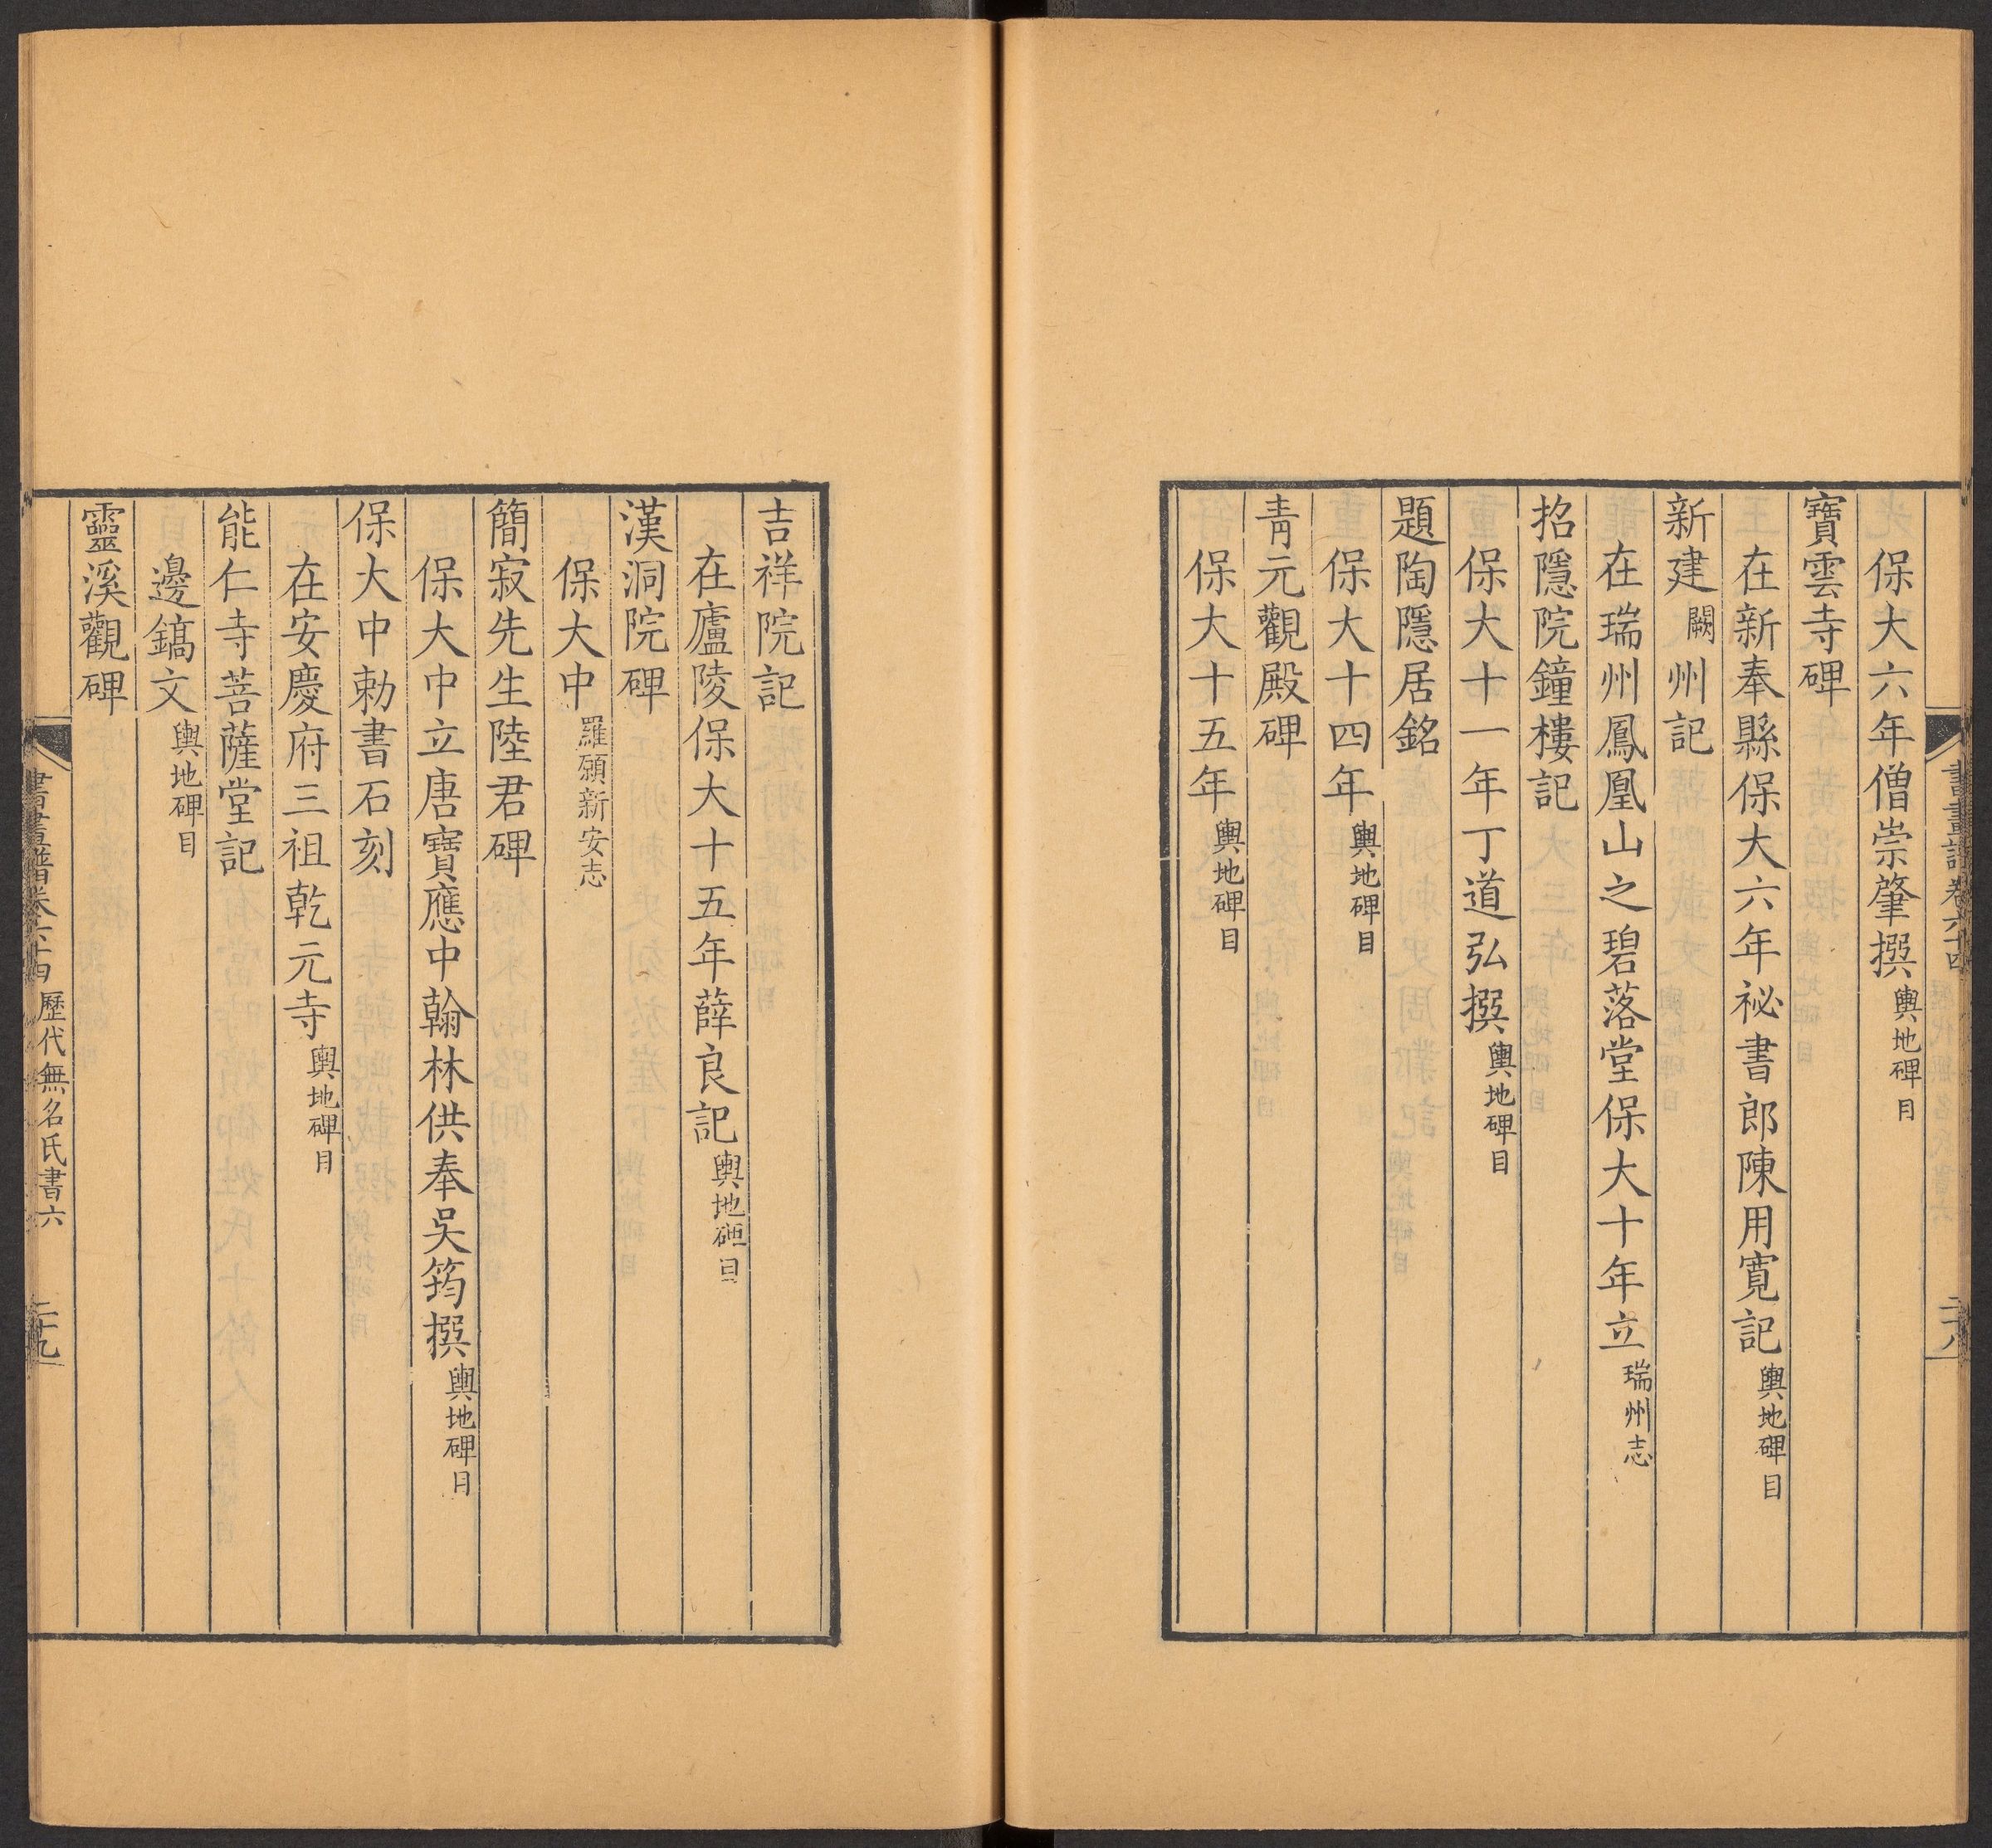 保大六年僧崇肇撰輿地碑目
寶雲寺碑
在新奉縣保大六年祕書郎陳用寬記輿地碑目
新建闕州記
在瑞州鳳凰山之碧落堂保大十年立瑞州志
招隱院鐘樓記
保大十一年丁道弘撰輿地碑目
題陶隱居銘
保大十四年輿地碑目
青元觀殿碑
保大十五年輿地碑目
吉祥院記
在廬陵保大十五年薛良記輿地碑目
漢洞院碑
保大中羅願新安志
簡寂先生陸君碑
保大中立唐寶應中翰林供奉吳筠撰輿地碑目
保大中勅書石刻
在安慶府三祖乾元寺輿地碑目
能仁寺菩薩堂記
邊鎬文輿地碑目
靈溪觀碑
書畫譜卷六十四 歷代無名氏書六 二十九